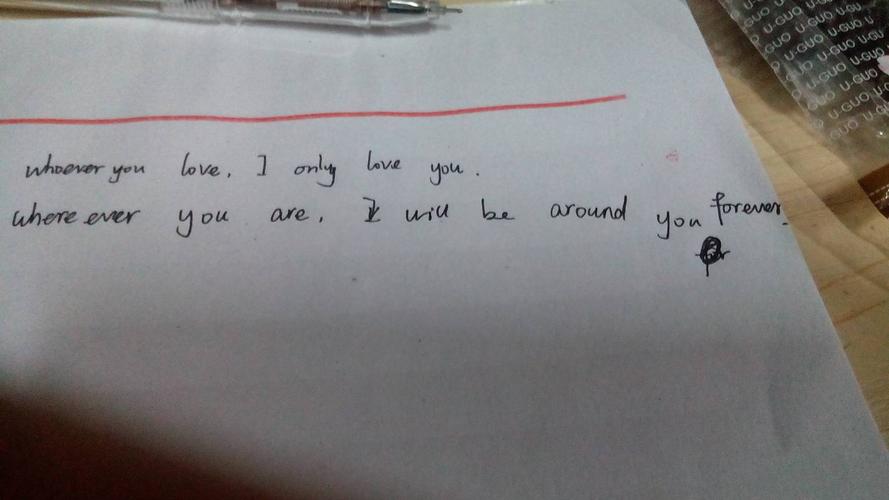 whoever you love, I only love you.
where ever you are, I will be around you forever.
U-GUO U-GUO U-GUO